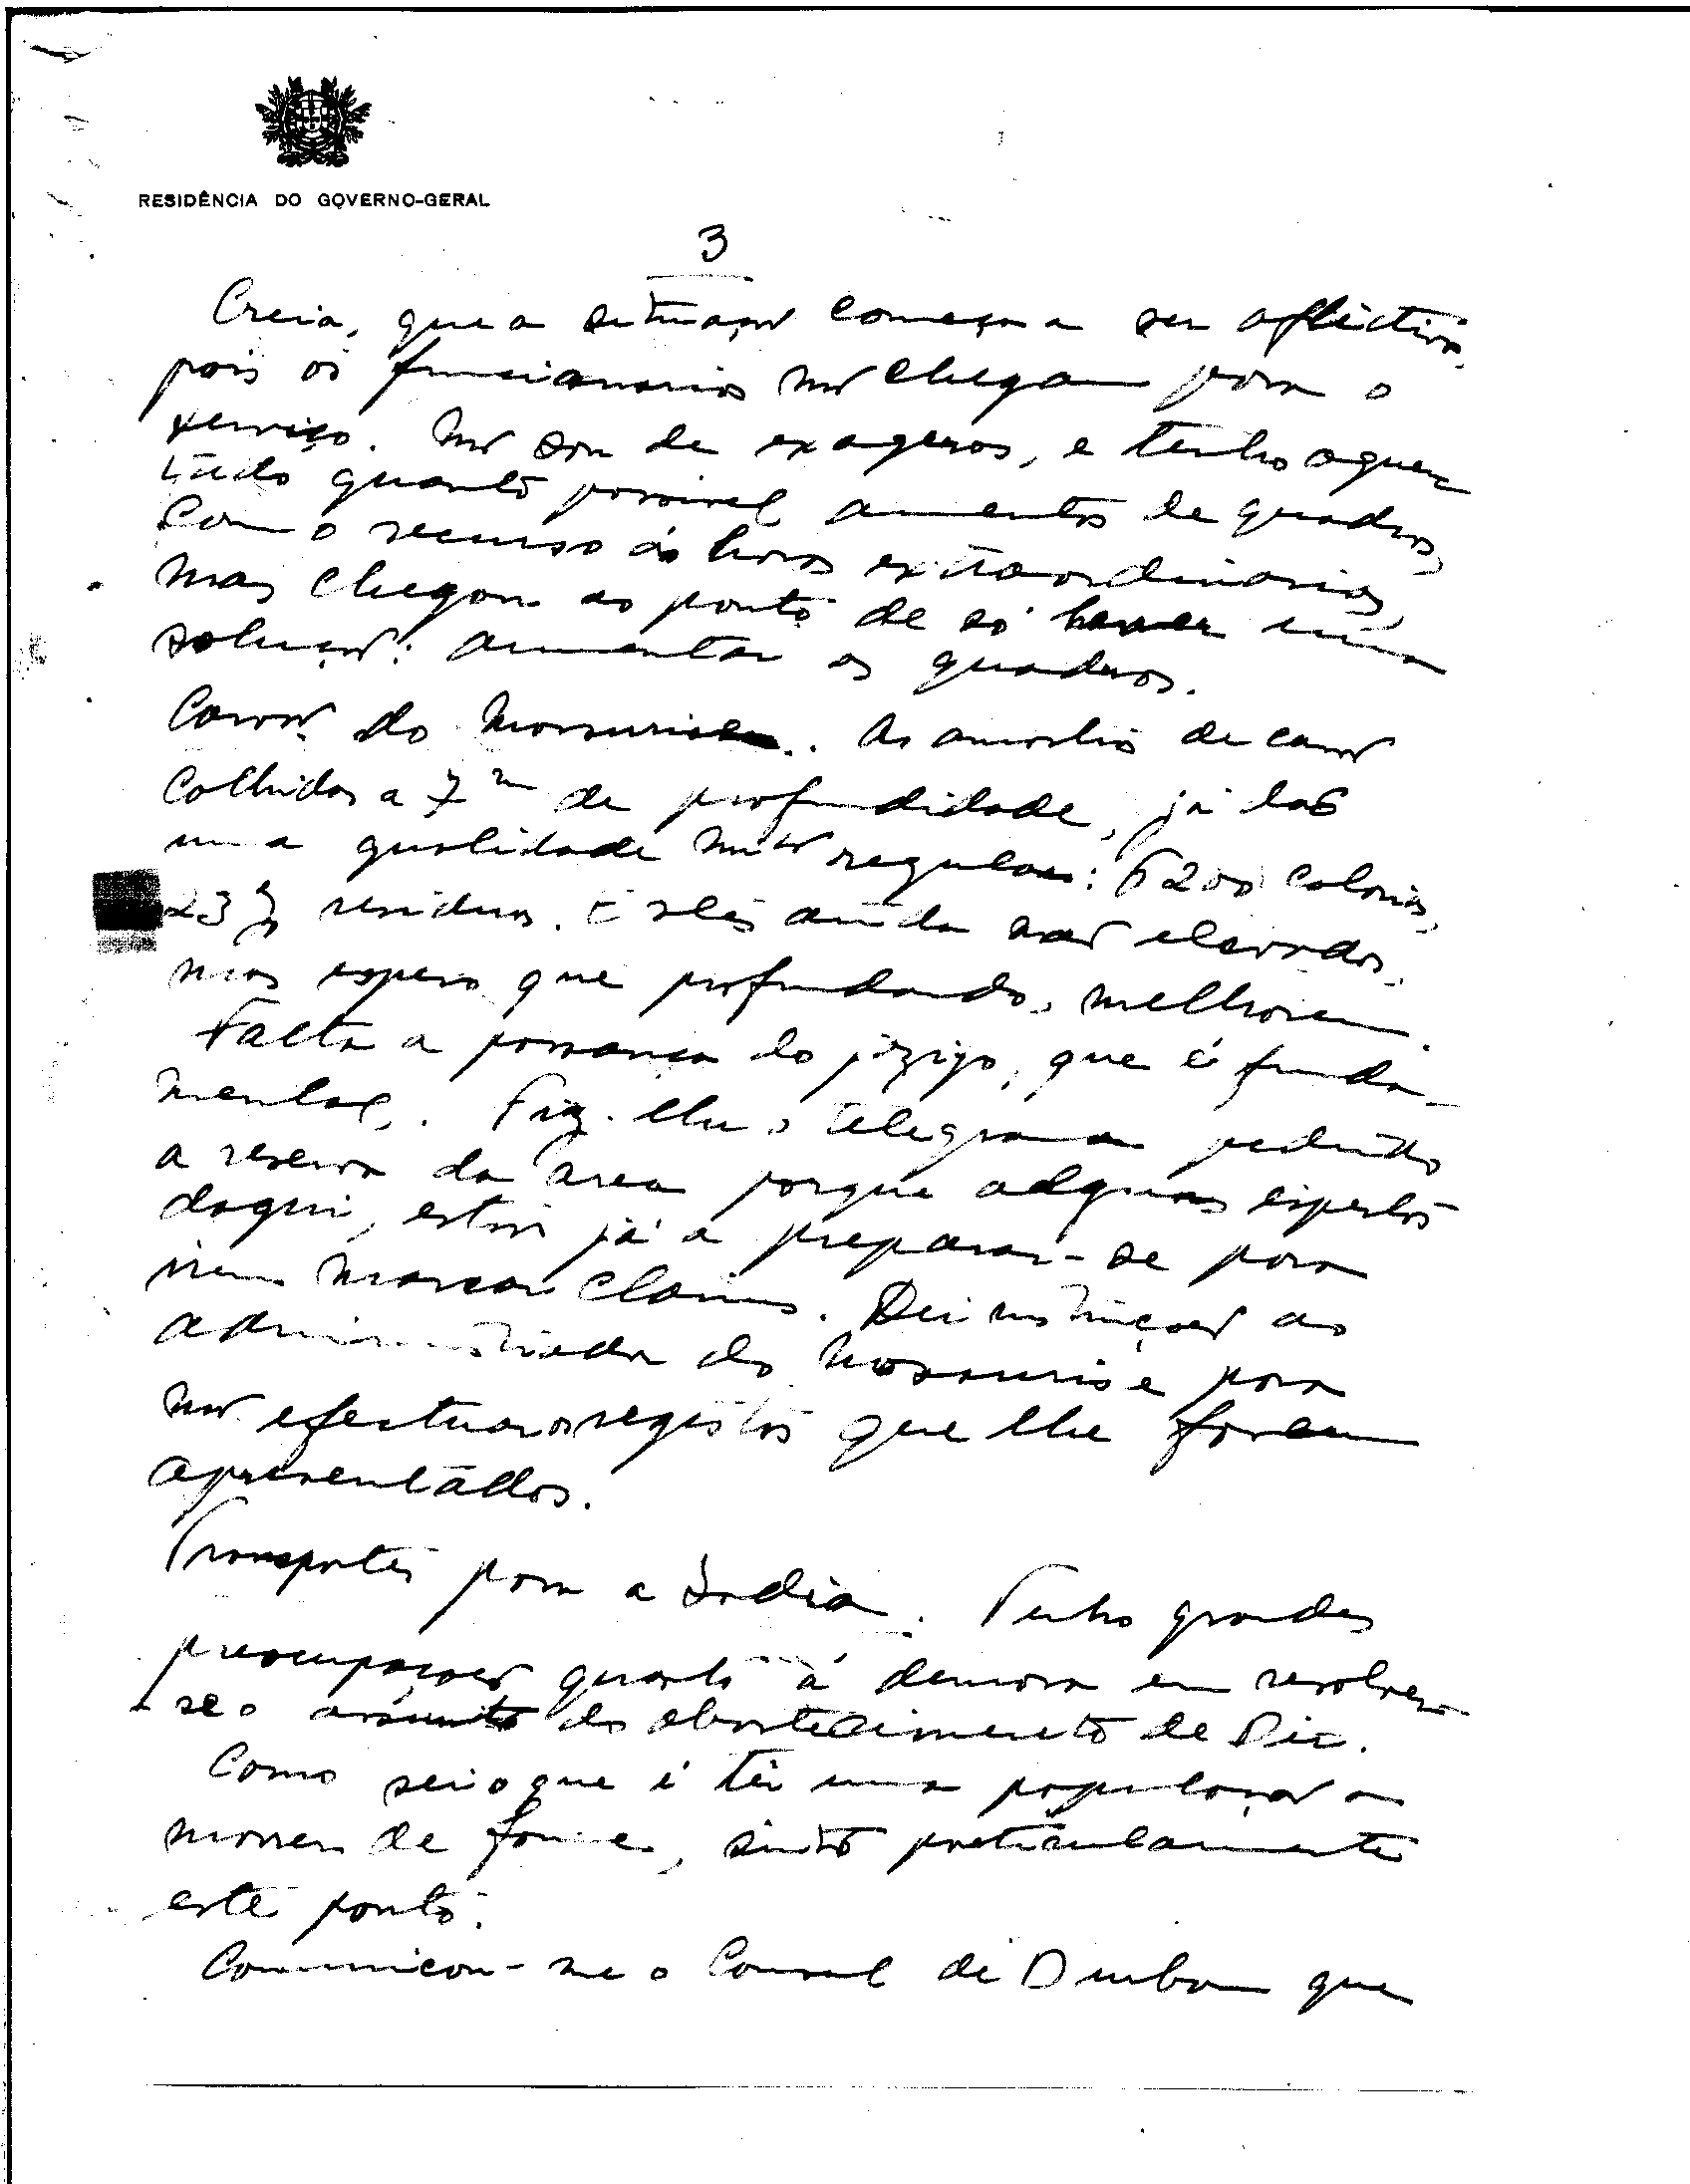 RESIDÊNCIA DO GOVERNO-GERAL
3
Creia, que a situação começa a ser aflictiva,
pois os funcionarios não chegam para o
serviço. Não sou de exageros, e tenho aguen
tado quanto possivel aumentos de quadros,
com o recurso ás horas extraordinarias,
mas chegou ao ponto de só haver uma
solução: aumentar os quadros.
Carvão do Mossurise. As amostras de carvão
colhidas a 7m de profundidade, já dão
uma qualidade muito regular: 6200 calorias,
23% residuos. Estes ainda são elevados,
mas espero que profundando, melhorem.
Falta a possança do jazigo, que é funda-
mental. Fiz-lhe o telegrama pedindo
a reserva da area porque alguns espertos
daqui, estão já a preparar-se para
irem marcar claims. Dei instruções ao
administrador do Mossurise para
não efectuar os registos que lhe forem
apresentados.
Transportes para a India. Tenho grandes
preocupações quanto á demora em resolver-
se o assunto do abastecimento de Diu.
Como sei o que é ter uma população a
morrer de fome, sinto particularmente
este ponto.
Comunicou-me o Consul de Durban que